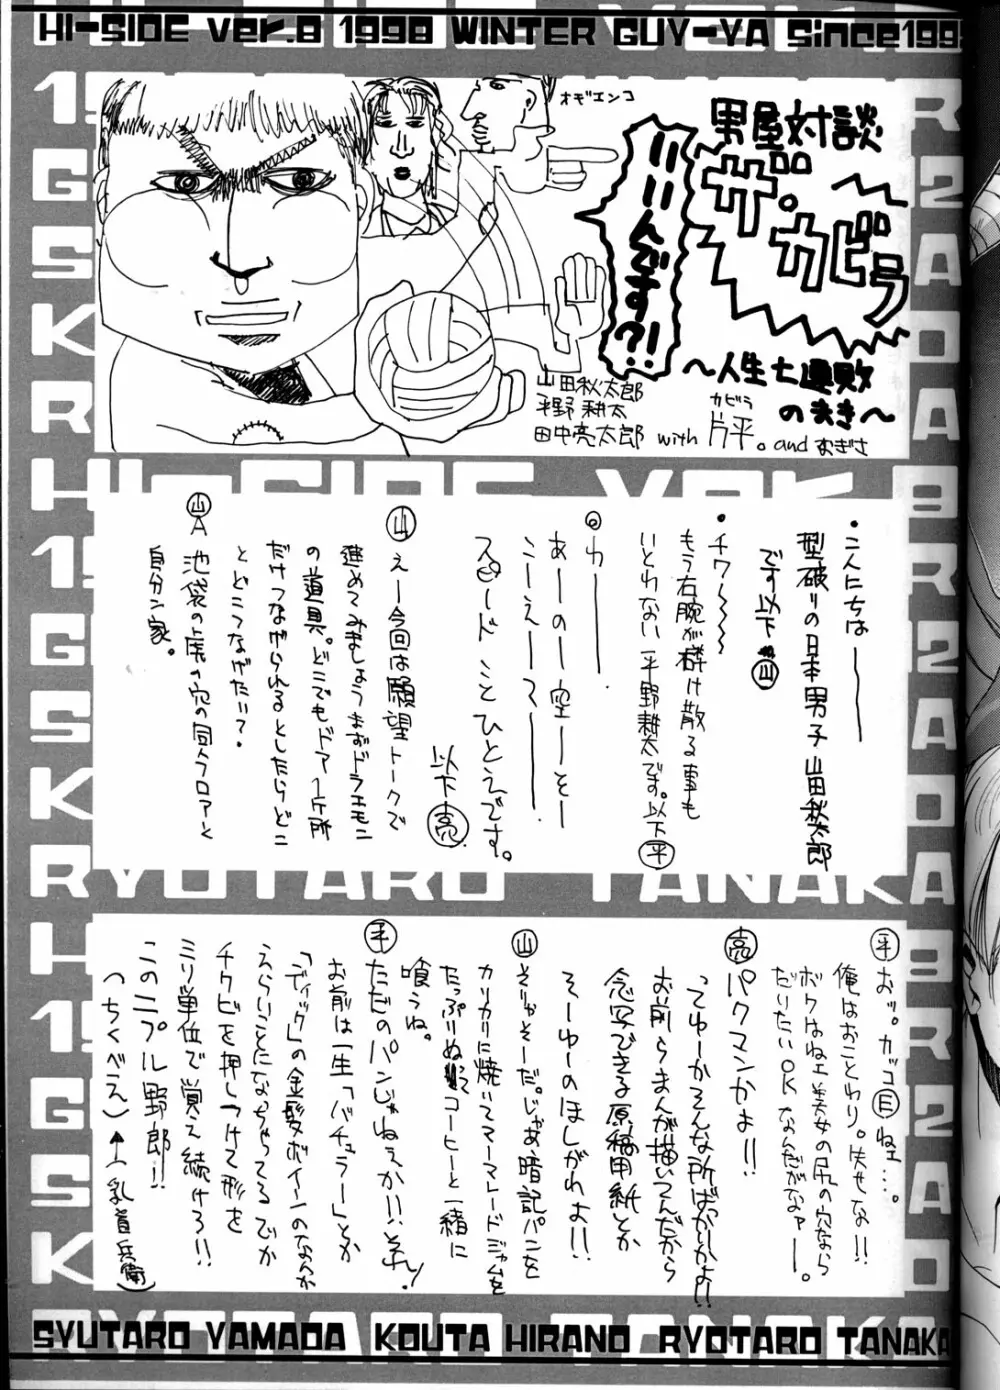 HI-SIDE ver.8 1998 WINTER GUY-YA Since199
オギエンコ
男屋対談
ザ・カビラ
いいんです?!
〜人生七連敗
の夫き〜
山田秋太郎
平野耕太
田中亮太郎 with 片平。and むぎさ
カビラ
・こんにちはー
型破りの日本男子 山田秋太郎
です以下山
・チワ〜〜〜
もう右腕が砕け散る事も
いとわない平野耕太です。以下平
◎わー
あーのー空ーそー
こーえーてー
スピードことひとえです。
以下亮
山 えー今回は願望トークで
進めてみましょうまずドラエモン
の道具。どこでもドア1ヶ所
だけつなげられるとしたらどこ
とどこつなげたい?
山A 池袋の虎の穴の同人フロアと
自分ン家。
平 おッ。カッコEね…。
俺はおことわり。失せな!!
ボクはねェ美女の尻の穴なら
だいたいOKなんだがなァー。
亮 パクマンかよ!!
ってゆーかそんな所ばっかりかよ!!
お前らまんが描いてんだから
念写できる原稿用紙とか
そーゆーのほしがれよ!!
山 そりゃそーだ。じゃあ暗記パンを
カリカリに焼いてマーマレードジャムを
たっぷりぬってコーヒーと一緒に
喰うね。
平 ただのパンじゃねェか!!それ!
お前は一生「バチュラー」とか
「ディック」の金髪ボインのなんか
えらいことになっちゃってるでか
チクビを押しつけて形を
ミリ単位で覚え続けろ!!
このニプル野郎!!
(ちくべえ)←(乳首兵衛)
SYUTARO YAMADA KOUTA HIRANO RYOTARO TANAKA